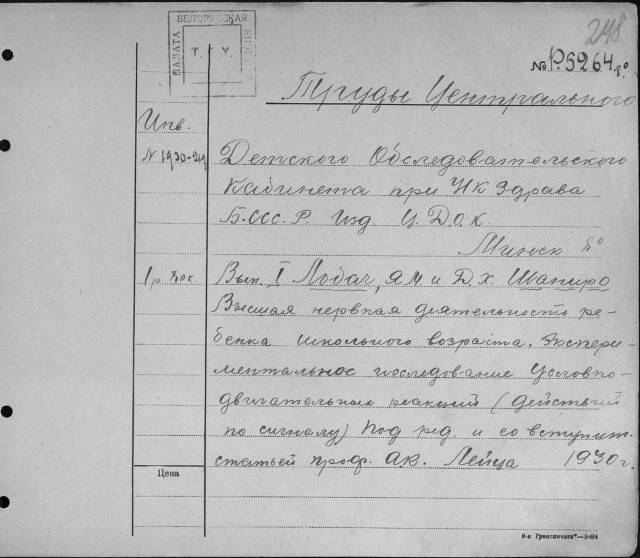 248
БЕЛОРУССКАЯ
ПАЛАТА
Т. У.
№ Р.5264 8°
Труды Центрального
Инв.
N 1930-29
Детского Обследовательского
Кабинета при НК Здрава
Б.ССС.Р. Изд Ц.Д.О.К.
Минск 8°
1 р 80 к
Вып. I Лобач, ЯМ и Д.Х. Шапиро
Высшая нервная деятельность ре-
бенка школьного возраста. Экспери-
ментальное исследование Условно-
двигательных реакций (действий
по сигналу) Под ред. и со вступит.
статьей проф. АК. Лейца 1930 г.
Цена
8-я Гранпечать"—3884